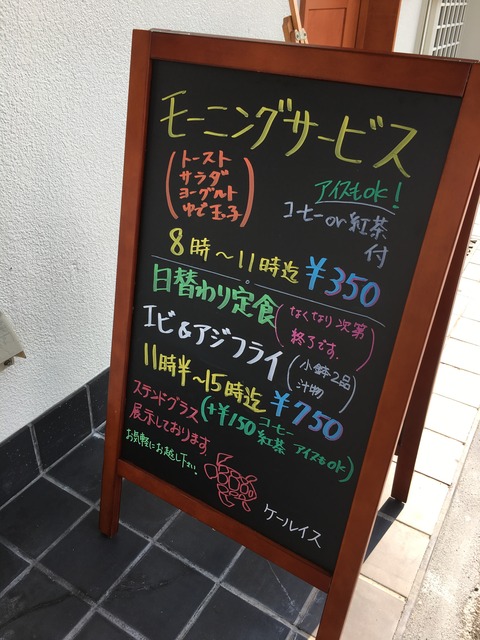 モーニングサービス
(トースト
サラダ
ヨーグルト
ゆで玉子)
アイスもok!
コーヒーor紅茶
付
8時〜11時迄 ¥350
日替わり定食
(なくなり次第
終了です。)
エビ&アジフライ
(小鉢2品
汁物)
11時半〜15時迄 ¥750
(+¥150 コーヒー
紅茶 アイスもok)
ステンドグラス
展示しております。
お気軽にお越し下さい。
ケールイス